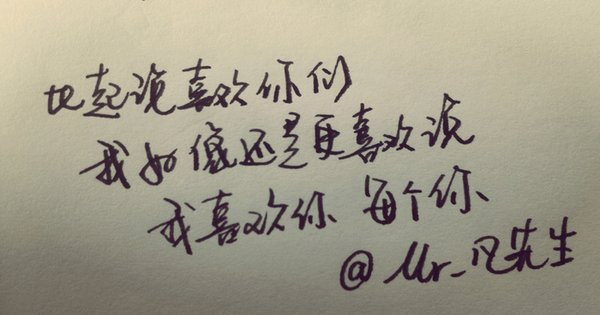 比起说喜欢你们
我如傻还是更喜欢说
我喜欢你 每个你
@Mr_凡先生